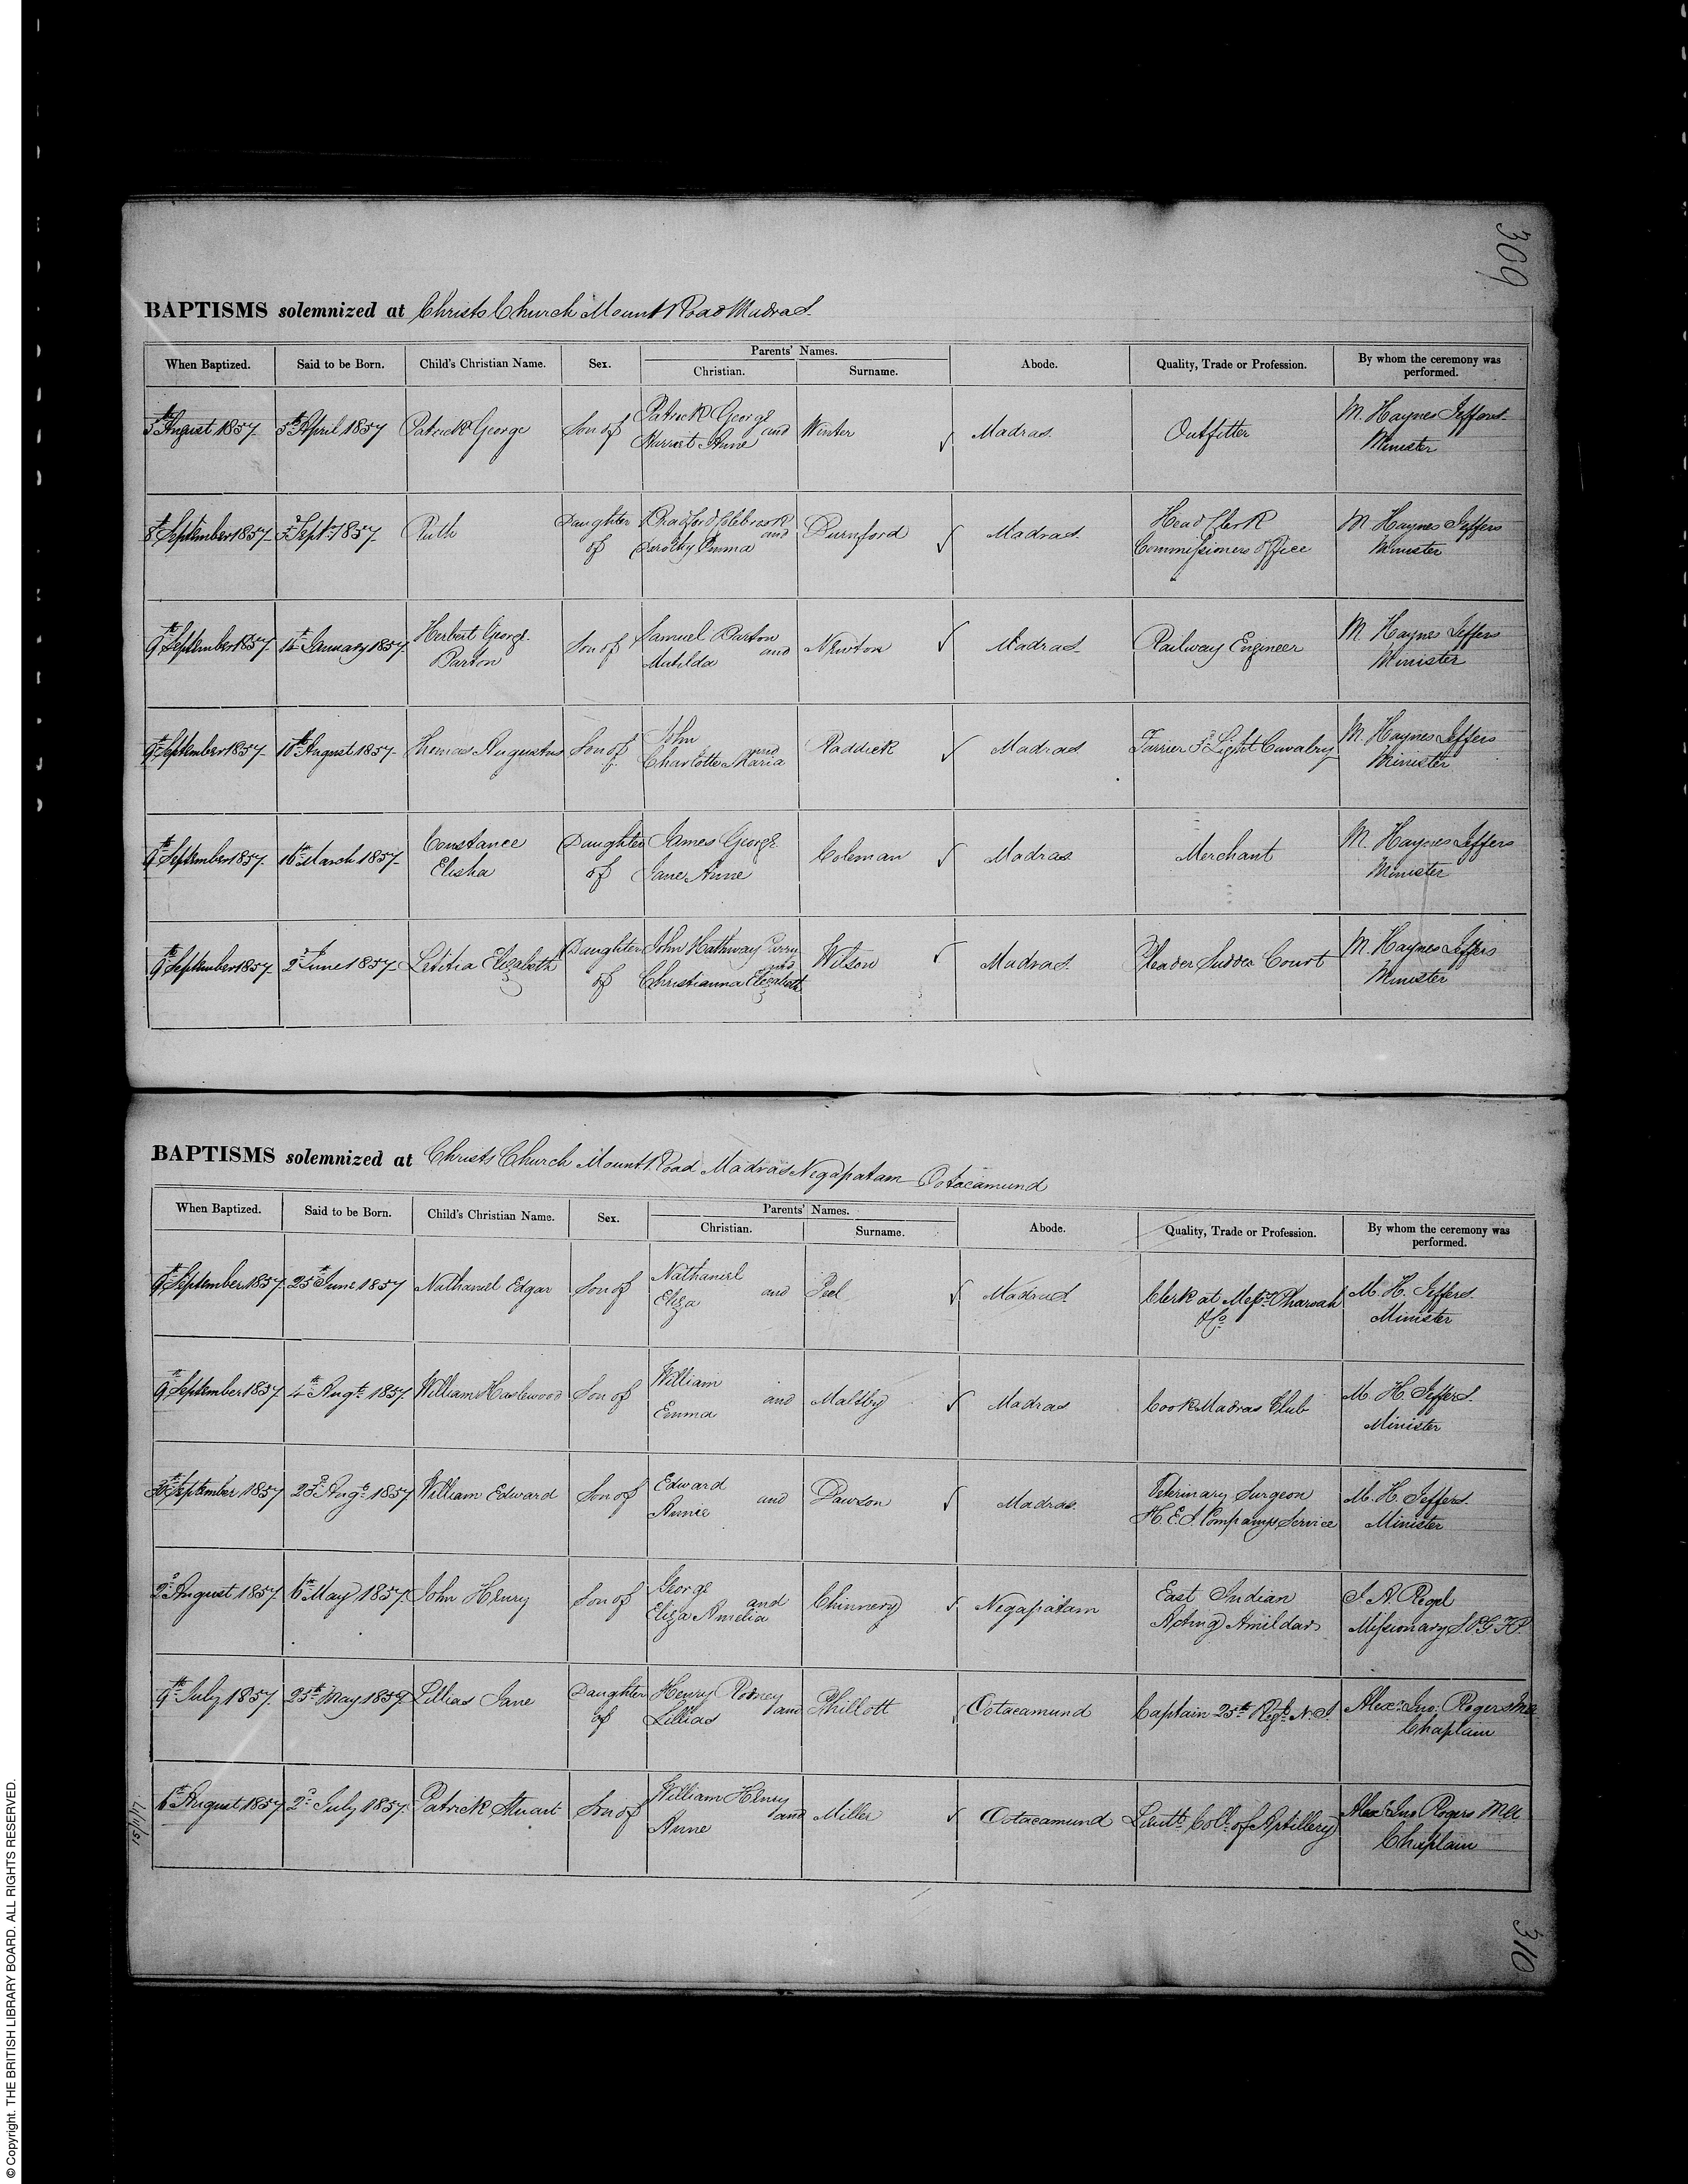 309
BAPTISMS solemnized at Christs Church Mount Road Madras
When Baptized. Said to be Born. Child's Christian Name. Sex. Parents' Names. Christian. Surname. Abode. Quality, Trade or Profession. By whom the ceremony was performed.
5th August 1857 5th April 1857 Patrick George Son of Patrick George and Harriet Anne Winter Madras Outfitter M. Haynes Jeffers Minister
8th September 1857 3d Sept. 1857 Ruth Daughter of Bradford Colebrook and Dorothy Emma Durnford Madras Head Clerk Commissioners Office M. Haynes Jeffers Minister
9th September 1857 14th January 1857 Herbert George Barton Son of Samuel Barton and Matilda Newton Madras Railway Engineer M. Haynes Jeffers Minister
9th September 1857 10th August 1857 Thomas Augustus Son of John and Charlotte Maria Raddick Madras Farrier 3d Light Cavalry M. Haynes Jeffers Minister
9th September 1857 16th March 1857 Constance Elisha Daughter of James George Jane Anne Coleman Madras Merchant M. Haynes Jeffers Minister
9th September 1857 2d June 1857 Letitia Elizabeth Daughter of John Hathway Parry and Christianna Elizabeth Wilson Madras Pleader Sudder Court M. Haynes Jeffers Minister
BAPTISMS solemnized at Christs Church Mount Road Madras Negapatam Ootacamund
When Baptized. Said to be Born. Child's Christian Name. Sex. Parents' Names. Christian. Surname. Abode. Quality, Trade or Profession. By whom the ceremony was performed.
9th September 1857 25th June 1857 Nathaniel Edgar Son of Nathaniel and Eliza Peel Madras Clerk at Messrs Pharoah & Co. M. H. Jeffers Minister
9th September 1857 4th Augt. 1857 William Haslewood Son of William and Emma Maltby Madras Cook Madras Club M. H. Jeffers Minister
30th September 1857 23d Augt. 1857 William Edward Son of Edward and Annie Dawson Madras Veterinary Surgeon H. E. I. Companys Service M. H. Jeffers Minister
2d August 1857 6th May 1857 John Henry Son of George and Eliza Amelia Chinnery Negapatam East Indian Acting Amildar J. A. Regel Missionary S. P. G. F. P.
9th July 1857 25th May 1857 Lillias Jane Daughter of Henry Rodney and Lillias Phillott Ootacamund Captain 25th Regt. N. I. Alexr. Jno. Rogers MA Chaplain
6th August 1857 2d July 1857 Patrick Stuart Son of William Henry and Anne Miller Ootacamund Lieutt. Coll. of Artillery Alexr. Jno Rogers MA Chaplain
310
© Copyright. THE BRITISH LIBRARY BOARD. ALL RIGHTS RESERVED.